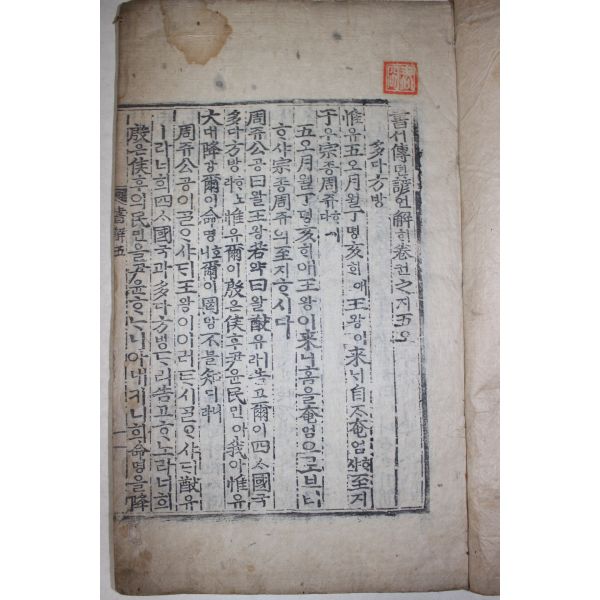 書셔傳뎐諺언解ᄒᆡ卷권之지五오
多다方방
惟유五오月월丁뎡亥ᄒᆡ애王왕이來ᄅᆡ自ᄌᆞ奄엄ᄒᆞ샤至지
于우宗종周쥬ᄒᆞ시다
五오月월丁뎡亥ᄒᆡ애王왕이來ᄅᆡ홈을奄엄으로브터
ᄒᆞ샤宗종周쥬의至지ᄒᆞ시다
周쥬公공曰왈王왕若약曰왈猷유라告고爾이四ᄉᆞ國국
多다方방ᄒᆞ노라惟유爾이殷은侯후尹윤民민아我아ㅣ惟유
大대降강爾이命명호니爾이罔망不블知디니라
周쥬公공이ᄀᆞᆯᄋᆞ샤ᄃᆡ王왕이이러ᄐᆞ시ᄀᆞᆯᄋᆞ샤ᄃᆡ猷유
ㅣ라너희四ᄉᆞ國국과多다方방ᄃᆞ려告고ᄒᆞ노라너희
殷은侯후의民민을尹윤ᄒᆞᄂᆞ니아내키너희命명을降
書解五 一